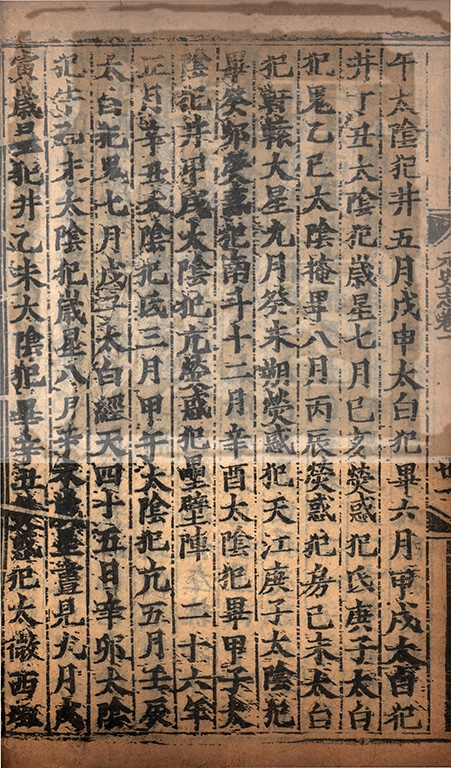 元史志卷一
廿一
午太陰犯井五月戊申太白犯畢六月甲戌太白犯
井丁丑太陰犯歲星七月己亥熒惑犯氐庚子太白
犯鬼乙巳太陰掩畢八月丙辰熒惑犯房己未太白
犯軒轅大星九月癸未朔熒惑犯天江庚子太陰犯
畢癸卯熒惑犯南斗十二月辛酉太陰犯畢甲子太
陰犯井甲戌太陰犯亢熒惑犯壘壁陣　二十六年
正月辛丑太陰犯氐三月甲午太陰犯亢五月壬辰
太白犯鬼七月戊子太白經天四十五日辛卯太陰
犯牛乙未太陰犯歲星八月辛未歲星晝見九月戊
寅歲星犯井乙未太陰犯畢辛丑熒惑犯太微西垣